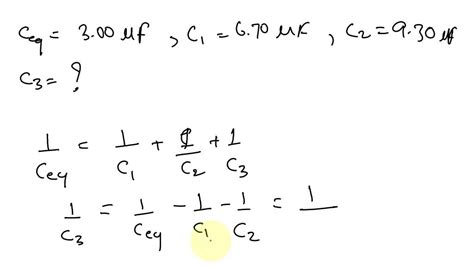 Ceq = 3.00 μf , C1 = 6.70 μf , C2 = 9.30 μf
C3 = ?
1/Ceq = 1/C1 + 1/C2 + 1/C3
1/C3 = 1/Ceq - 1/C1 - 1/C2 = 1/